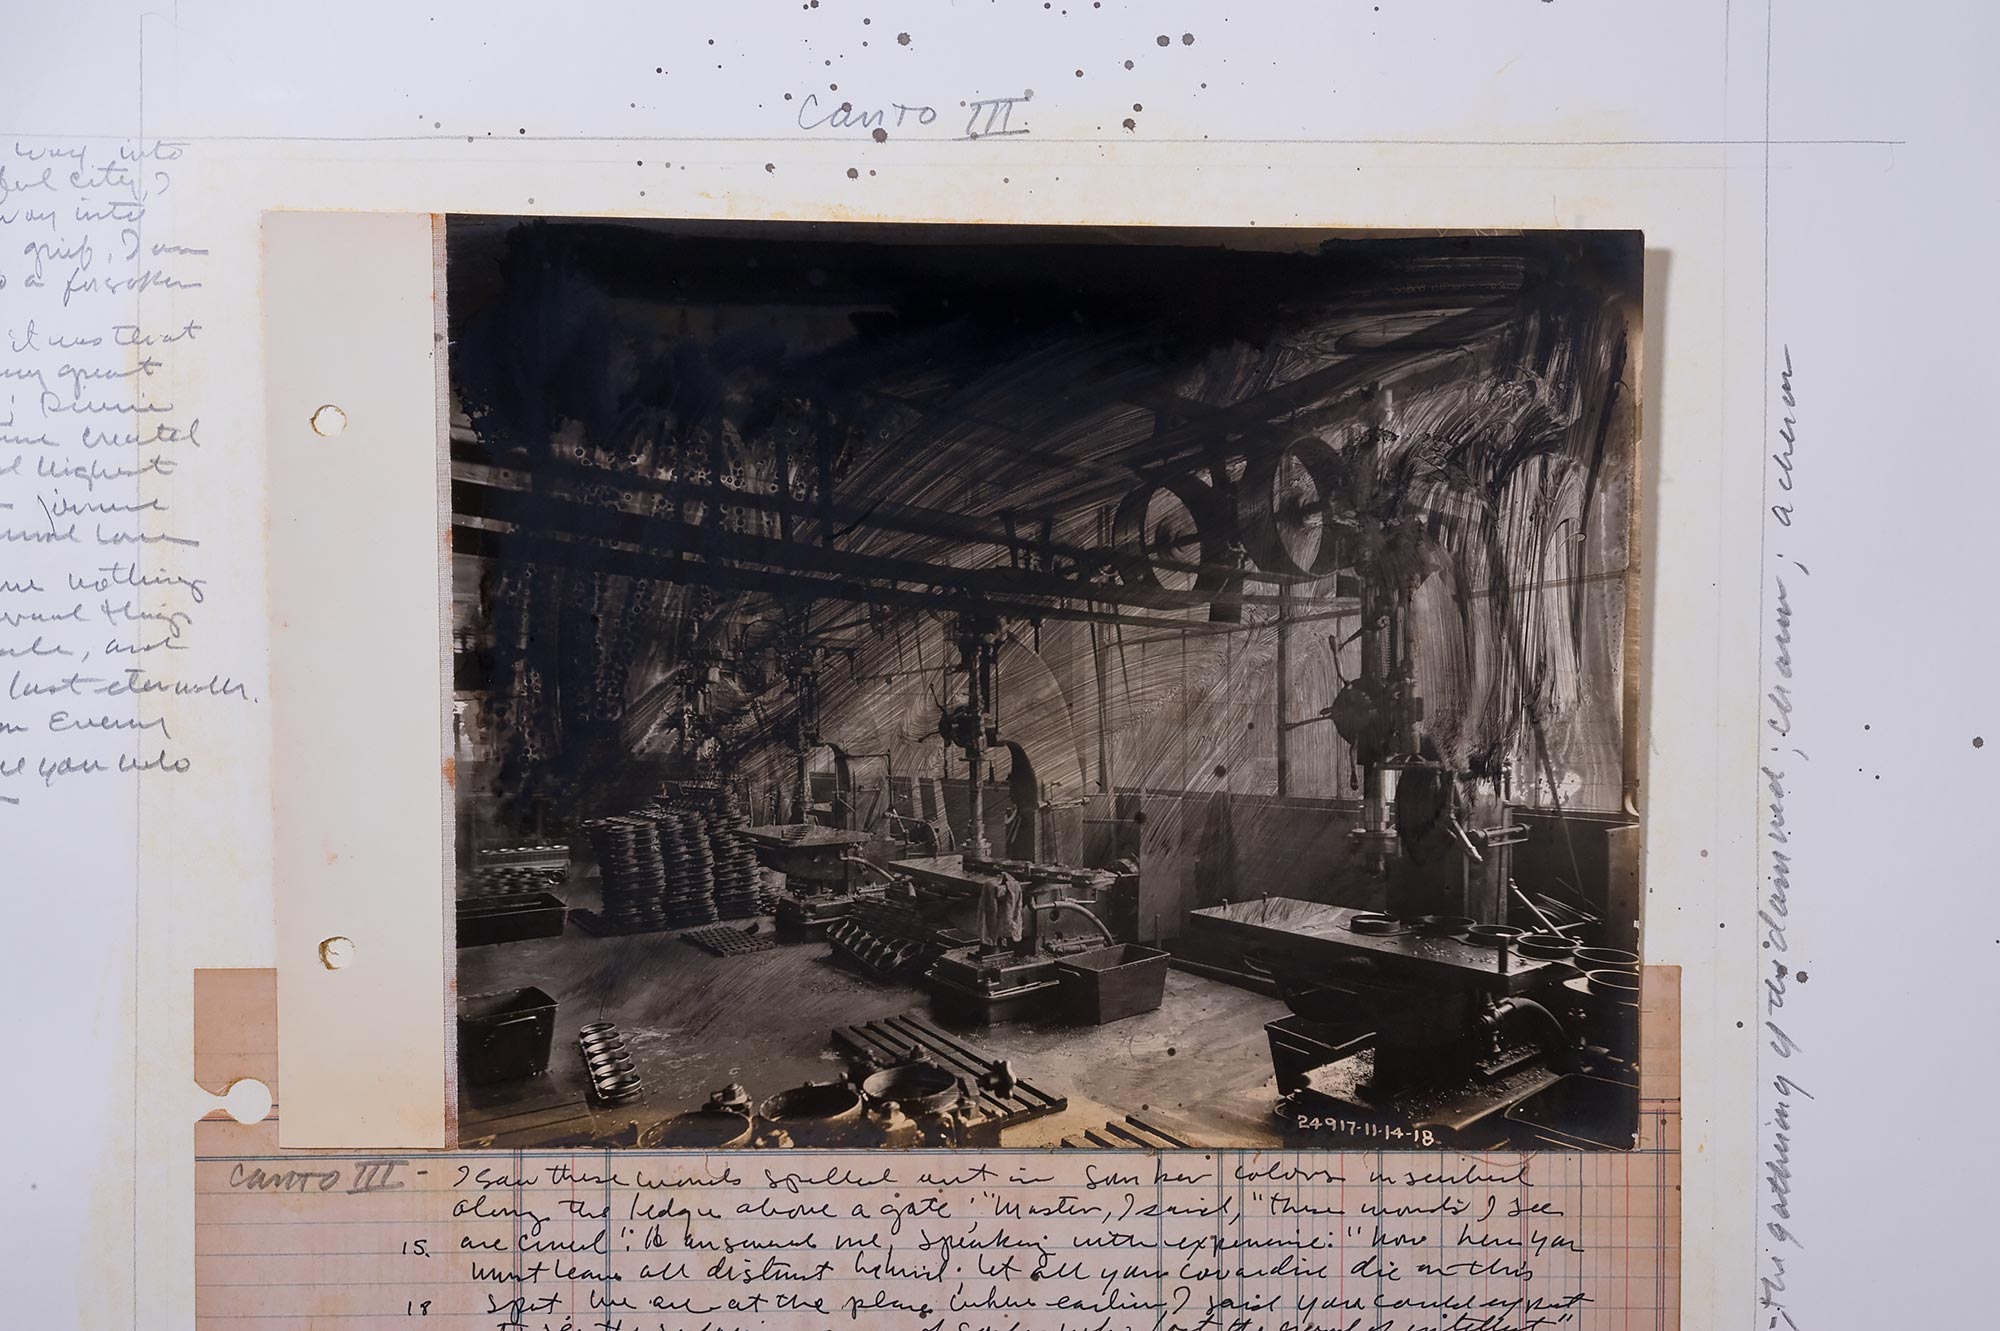 Canto III.
way into
ful city, I
way into
grief, I am
a forsaken
it was that
my great
; Divine
me created
d highest
primal love
me nothing
ernal things
, and
last eternally.
on Every
you who
24917-11-14-18.
the gathering of the damned; charon; acheron
Canto III - I saw these words spelled out in somber colors inscribed
along the ledge above a gate; "Master, I said, "these words I see
are cruel": He answered me, speaking with experience: "Now here you
15. must leave all distrust behind; let all your cowardice die on this
18 spot we are at the place where earlier, I said you could expect
to see the suffering race of souls who lost the good of intellect"